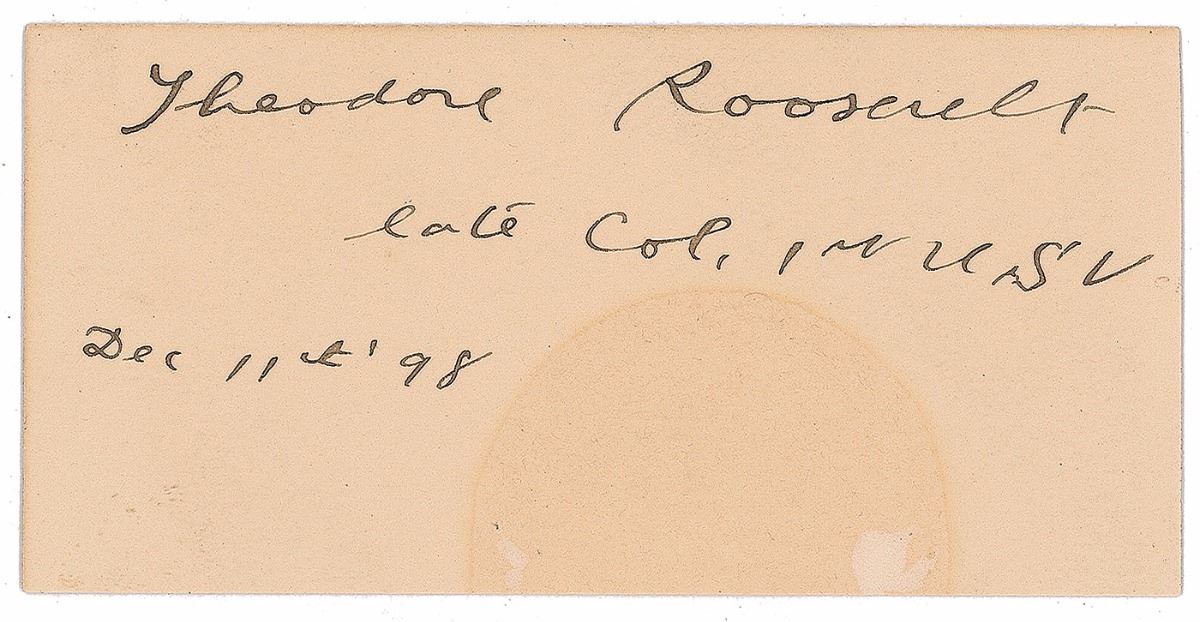 Theodore Roosevelt
late Col, 1st U.S.V
Dec 11th '98